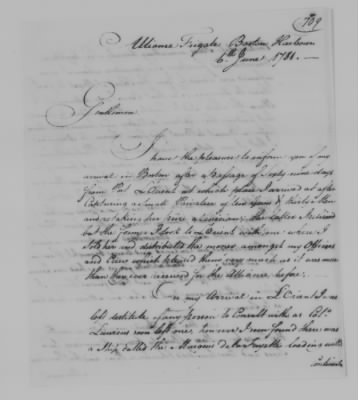 709
Alliance Frigate Boston Harbour
6th June 1781.
Gentlemen
I have the pleasure to inform you of my
arrival in Boston after a Passage of Sixty nine days
from Port L'Orient at which place I arrived at after
Capturing a Small Privateer of ten Guns & thirty Men
and retaking her prize a Venecian, the latter I
but the former I took to L'Orient with me where I
Sold her and distributed the money amongst my Officers
and Crew which pleased them very much as it was more
than they ever received for the Alliance before.
On my Arrival in L'Orient I was
left destitute of any Person to Consult with as Colo.
Laurens soon left me, however I soon found there was
a Ship called the Marquis de la Fayette loading with
Continental